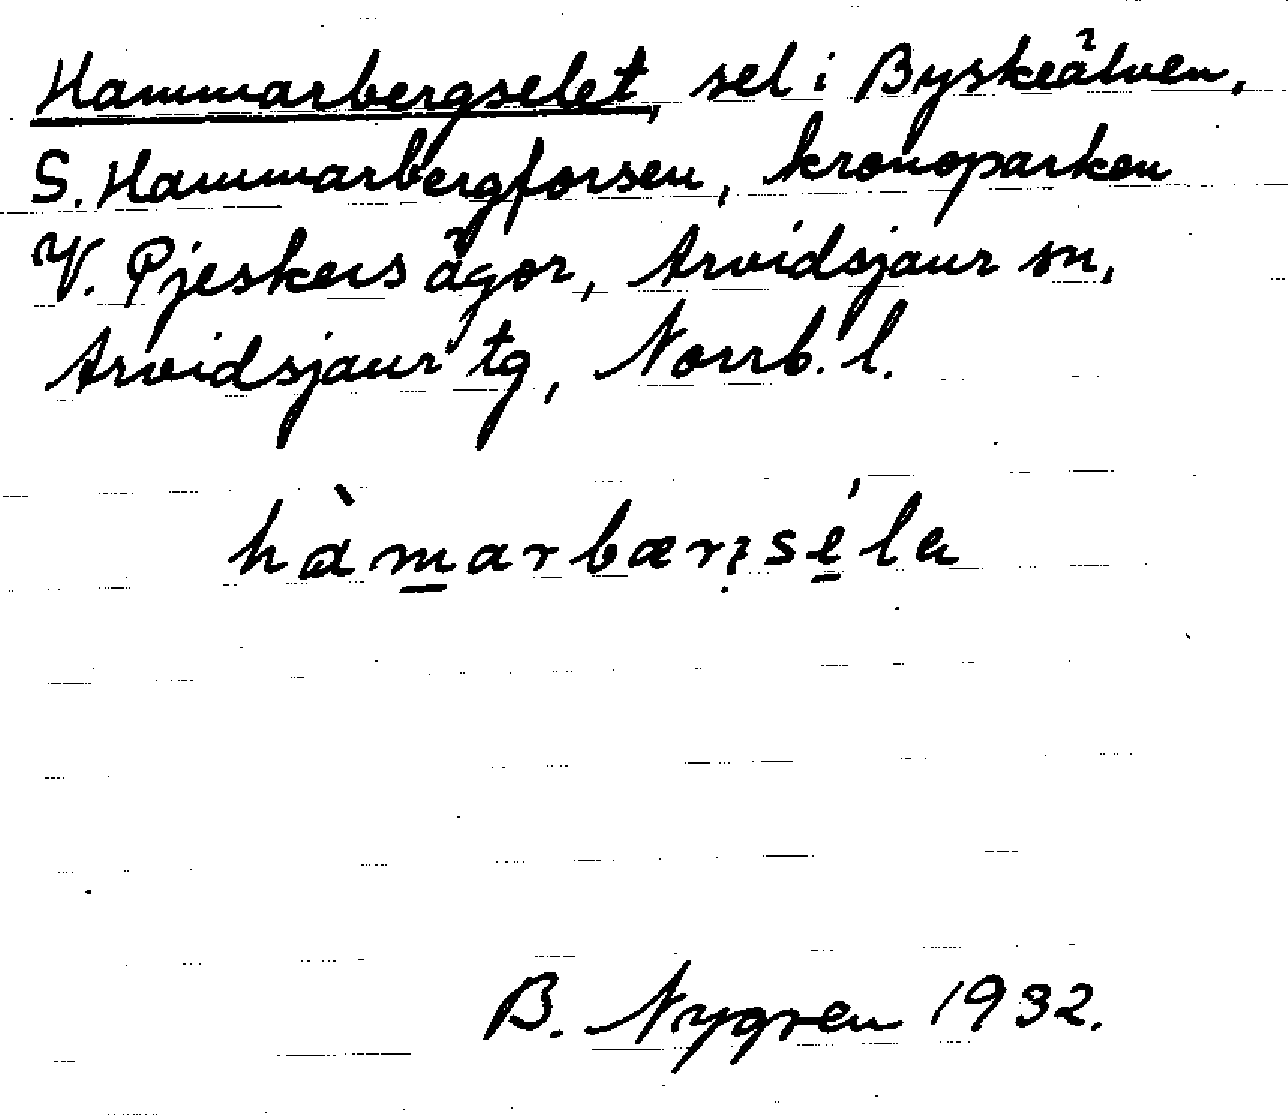 Hammarbergselet, sel i Byskeälven,
S. Hammarbergforsen, kronoparken
V. Pjeskers ägor, Arvidsjaur sn,
Arvidsjaur tg, Norrb. l.
hàmarbærsé̱la
B. Nygren 1932.